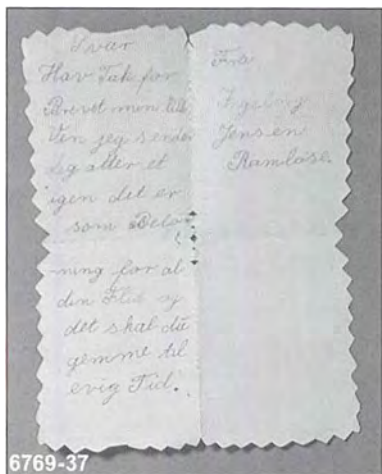 Svar
Hav Tak for
Brevet min lille
Ven jeg sender
dig atter et
igen det er
som Beløn
ning for al
din Flid og
det skal du
gemme til
evig Tid.
Fra
Ingeborg
Jensen
Ramløse.
6769-37